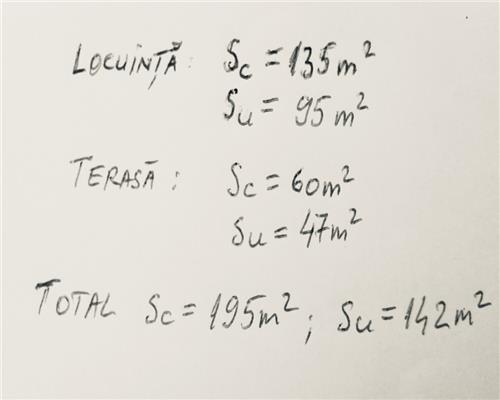 LOCUINȚĂ: Sc = 135m²
Su = 95m²
TERASĂ: Sc = 60m²
Su = 47m²
TOTAL Sc = 195m²; Su = 142m²